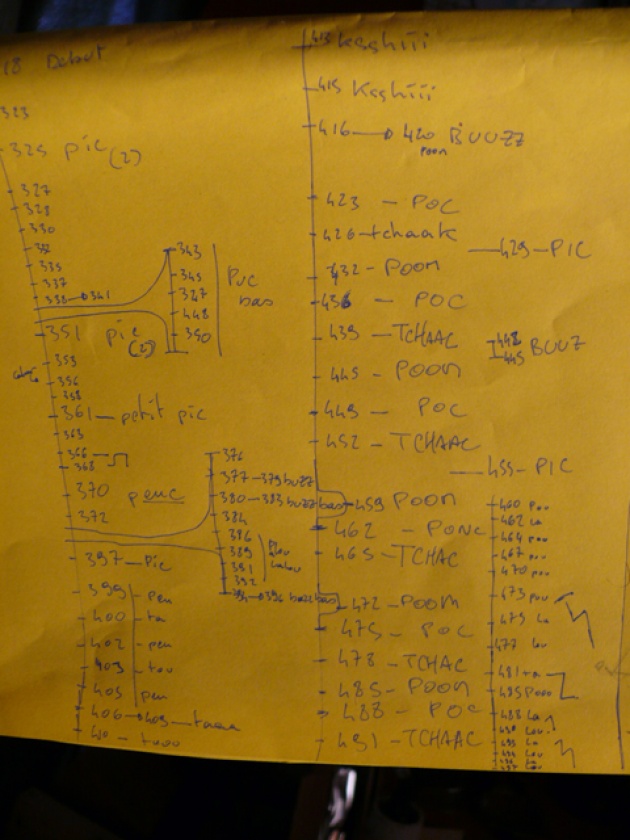 18 Debut
323
325 pic (2)
327
328
330
335
337
338 → 341
343
345
347
448
350
Puc
bas
351 pic
(2)
353
356
358
361 — petit pic
363
366
368
370 peuc
372
376
377 — 379 buzz
380 — 383 buzz bas
384
386
389
391
392
394 → 396 buzz bas
397 — Pic
399 — peu
400 — ta
402 — peu
403 — tou
405 — peu
406 → 409 — taaaa
410 — tooo
413 Kashiii
415 Kashiii
416 → 420 BUUZZ
poom
423 — POC
426 — tchaak
429 — PIC
432 — POOM
436 — POC
439 — TCHAAC
442
445 BUUZ
445 — POOM
449 — POC
452 — TCHAAC
455 — PIC
459 POOM
462 — PONC
465 — TCHAC
472 — POOM
475 — POC
478 — TCHAC
485 — POOM
488 — POC
491 — TCHAAC
460 Pou
462 la
464 pou
467 pou
470 pou
473 pou
475 la
477 lou
481 ta
485 Pooo
488 la